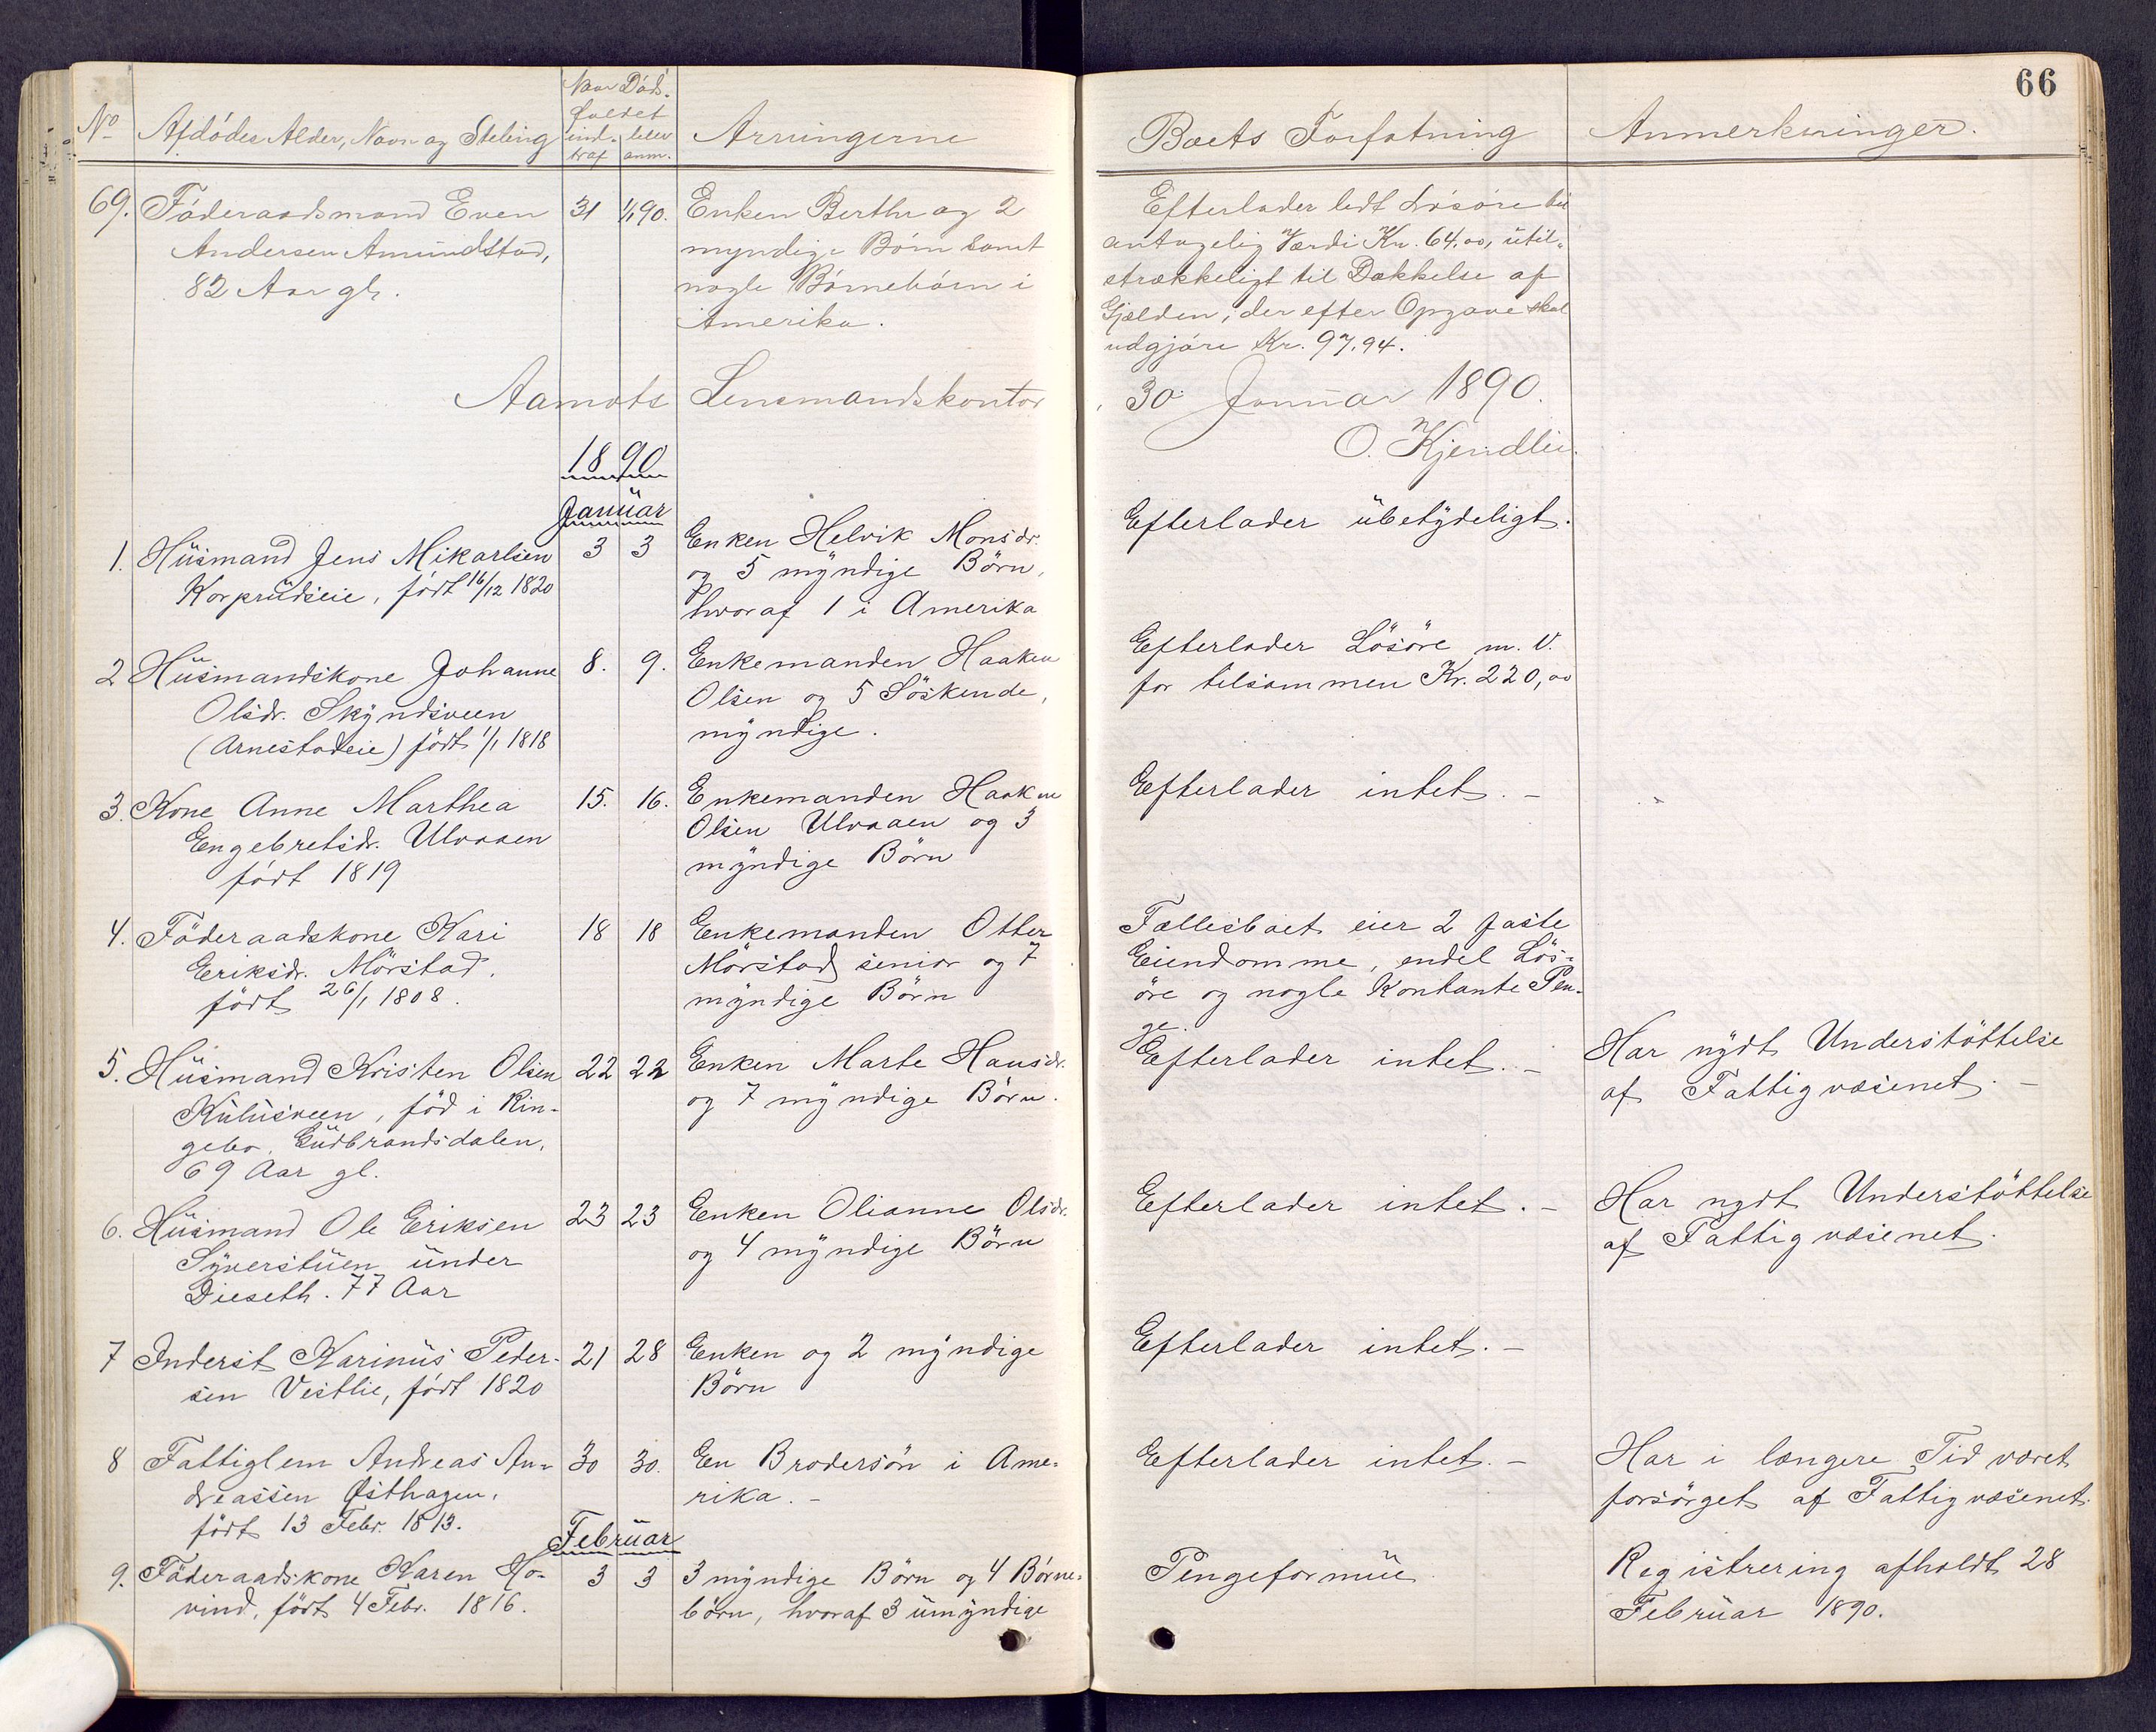 66
No Afdödes Alder, Navn og Steling Naar Döds- Arvingerne Boets Forfatning Anmerkninger.
faldet
ind- blev
traf anm.
69. Föderaadsmand Even 31 1/1 90. Enken Berthe og 2 Efterlader lidt Lösöre til
Andersen Amundstad, myndige Börn samt antagelig Værdi Kr. 64,00, util-
82 Aar gl. nogle Börnebörn i strækkeligt til Dækkelse af
Amerika. Gjælden, der efter Opgave skal
udgjöre Kr. 97,94.
Aamots Lensmandskontor, 30. Januar 1890.
O. Kjendlie.
1890
Januar
1. Husmand Jens Mikarlsen 3 3 Enken Helvik Monsdr. Efterlader ubetydeligt.
Korprudseie, födt 16/12 1820 og 5 myndige Börn,
hvoraf 1 i Amerika
2 Husmandskone Johanne 8. 9. Enkemanden Haaken Efterlader Lösöre m. V.
Olsdr. Skyndsveen Olsen og 5 Söskende, for tilsammen Kr. 220,00
(Arnestadeie) födt 1/1 1818 myndige.
3. Kone Anne Marthea 15. 16. Enkemanden Haaken Efterlader intet. -
Engebretsdr. Ulvaaen Olsen Ulvaaen og 3
födt 1819 myndige Börn
4. Föderaadskone Kari 18 18 Enkemanden Otter Fællesboet eier 2 faste
Eriksdr. Mörstad, Mörstad senior og 7 Eiendomme, endel Lös-
födt 26/1 1808. myndige Börn öre og nogle Kontante Pen-
ge.
5. Husmand Kristen Olsen 22 22 Enken Marte Hansdr. Efterlader intet. - Har nydt Understöttelse
Kulusveen, föd i Rin- og 7 myndige Börn. af Fattigvæsenet. -
gebo, Gudbrandsdalen,
69 Aar gl.
6. Husmand Ole Eriksen 23 23 Enken Olianne Olsdr. Efterlader intet. - Har nydt Understöttelse
Syverstuen under og 4 myndige Börn af Fattigvæsenet.
Dieseth. 77 Aar
7 Inderst Karinus Peder- 21 28 Enken og 2 myndige Efterlader intet. -
sen Vestlie, födt 1820 Börn
8 Fattiglem Andreas An- 30 30. En Brodersön i Ame- Efterlader intet. - Har i længere Tid været
dreassen Østhagen, rika. - forsörget af Fattigvæsenet.
födt 13 Febr. 1813.
Februar
9. Föderaadskone Karen Ho- 3 3 3 myndige Börn og 4 Börne- Pengeformue Registrering afholdt 28
vind, födt 4 Febr. 1816. börn, hvoraf 3 umyndige Februar 1890.